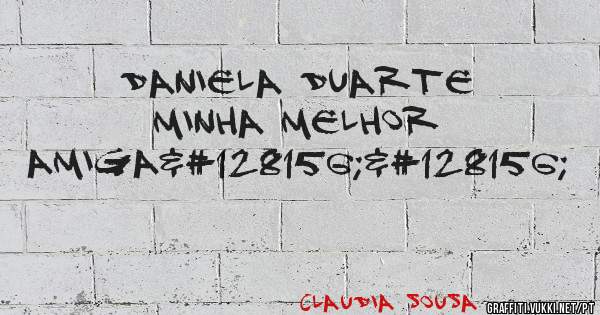 DANIELA DUARTE
MINHA MELHOR
AMIGA&#128156;&#128156;
CLAUDIA SOUSA
GRAFFITI.VUKKI.NET/PT